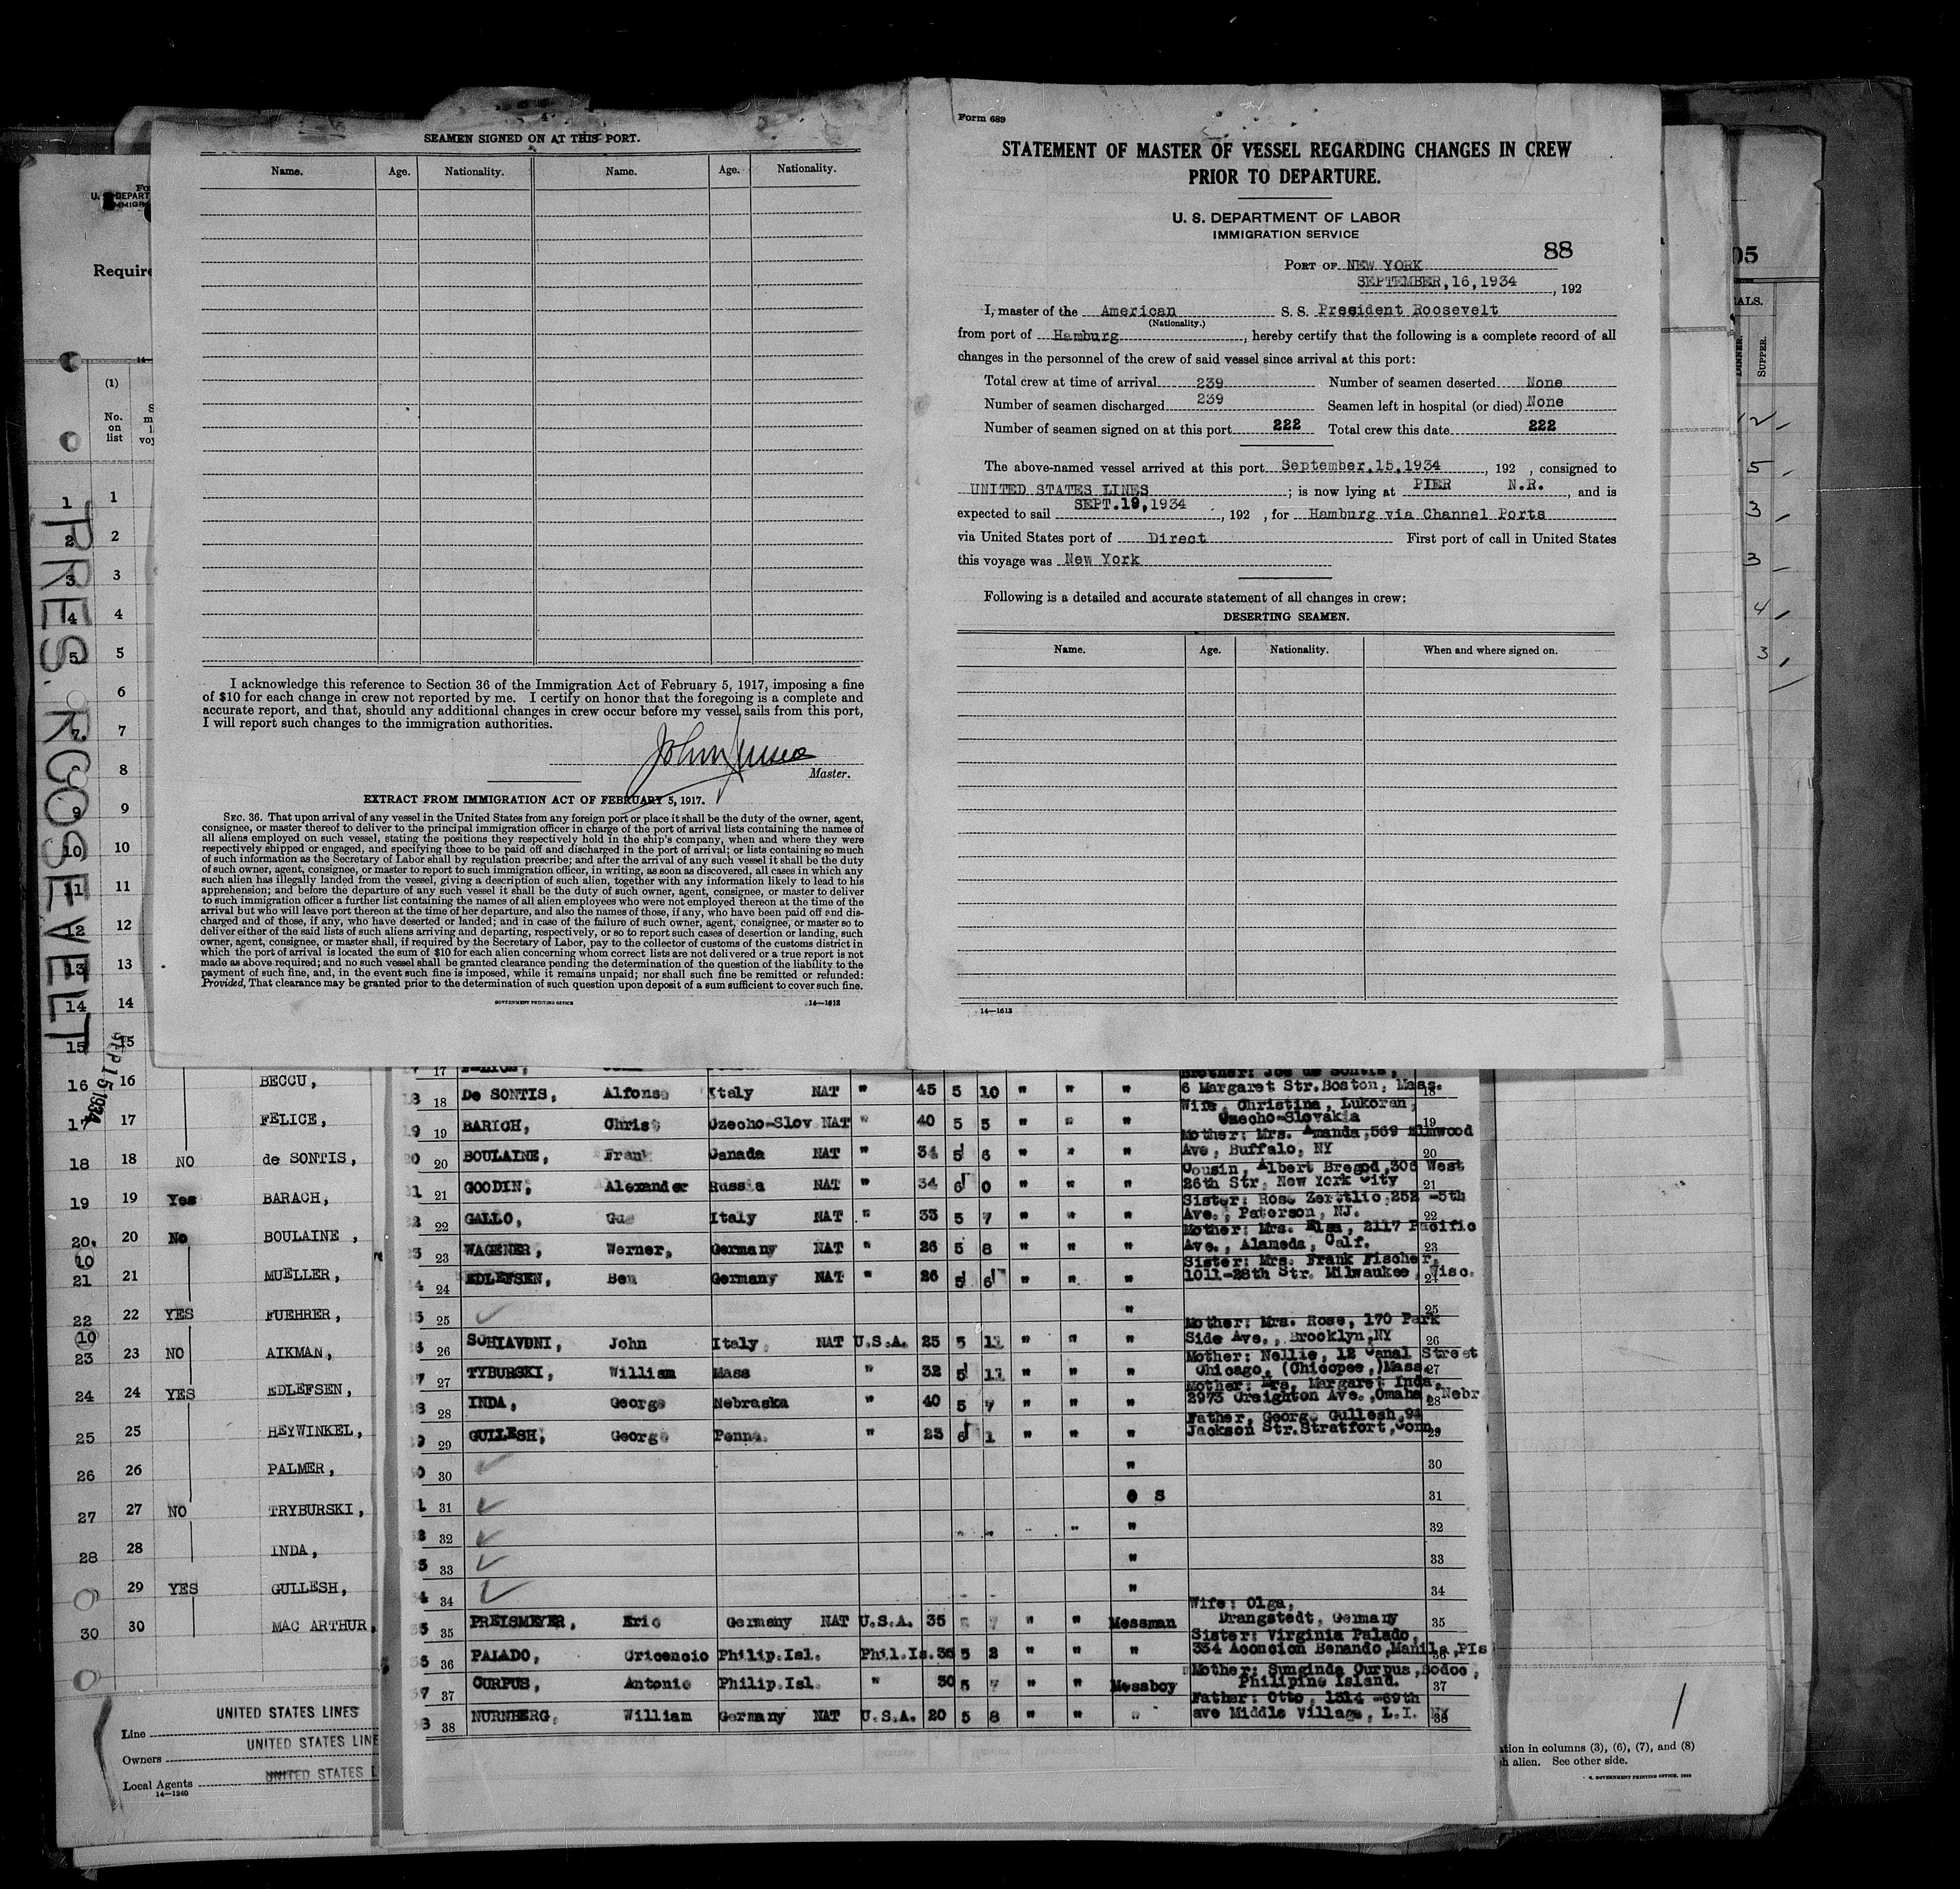 SEAMEN SIGNED ON AT THIS PORT.
Name. Age. Nationality. Name. Age. Nationality.
I acknowledge this reference to Section 36 of the Immigration Act of February 5, 1917, imposing a fine
of $10 for each change in crew not reported by me. I certify on honor that the foregoing is a complete and
accurate report, and that, should any additional changes in crew occur before my vessel sails from this port,
I will report such changes to the immigration authorities.
John Jensen
Master.
EXTRACT FROM IMMIGRATION ACT OF FEBRUARY 5, 1917.
SEC. 36. That upon arrival of any vessel in the United States from any foreign port or place it shall be the duty of the owner, agent,
consignee, or master thereof to deliver to the principal immigration officer in charge of the port of arrival lists containing the names of
all aliens employed on such vessel, stating the positions they respectively hold in the ship's company, when and where they were
respectively shipped or engaged, and specifying those to be paid off and discharged in the port of arrival; or lists containing so much
of such information as the Secretary of Labor shall by regulation prescribe; and after the arrival of any such vessel it shall be the duty
of such owner, agent, consignee, or master to report to such immigration officer, in writing, as soon as discovered, all cases in which any
such alien has illegally landed from the vessel, giving a description of such alien, together with any information likely to lead to his
apprehension; and before the departure of any such vessel it shall be the duty of such owner, agent, consignee, or master to deliver
to such immigration officer a further list containing the names of all alien employees who were not employed thereon at the time of the
arrival but who will leave port thereon at the time of her departure, and also the names of those, if any, who have been paid off and dis-
charged and of those, if any, who have deserted or landed; and in case of the failure of such owner, agent, consignee, or master so to
deliver either of the said lists of such aliens arriving and departing, respectively, or so to report such cases of desertion or landing, such
owner, agent, consignee, or master shall, if required by the Secretary of Labor, pay to the collector of customs of the customs district in
which the port of arrival is located the sum of $10 for each alien concerning whom correct lists are not delivered or a true report is not
made as above required; and no such vessel shall be granted clearance pending the determination of the question of the liability to the
payment of such fine, and, in the event such fine is imposed, while it remains unpaid; nor shall such fine be remitted or refunded:
Provided, That clearance may be granted prior to the determination of such question upon deposit of a sum sufficient to cover such fine.
GOVERNMENT PRINTING OFFICE 14—1613
Form 689
STATEMENT OF MASTER OF VESSEL REGARDING CHANGES IN CREW
PRIOR TO DEPARTURE.
U. S. DEPARTMENT OF LABOR
IMMIGRATION SERVICE
88
PORT OF NEW YORK
SEPTEMBER,16,1934, 192
I, master of the American S. S. President Roosevelt
(Nationality.)
from port of Hamburg, hereby certify that the following is a complete record of all
changes in the personnel of the crew of said vessel since arrival at this port:
Total crew at time of arrival 239 Number of seamen deserted None
Number of seamen discharged 239 Seamen left in hospital (or died) None
Number of seamen signed on at this port 222 Total crew this date 222
The above-named vessel arrived at this port September,15,1934, 192 , consigned to
UNITED STATES LINES; is now lying at PIER N.R., and is
expected to sail SEPT.19,1934, 192 , for Hamburg via Channel Ports
via United States port of Direct First port of call in United States
this voyage was New York
Following is a detailed and accurate statement of all changes in crew:
DESERTING SEAMEN.
Name. Age. Nationality. When and where signed on.
14—1613
Require
(1)
No.
on
list
PRES. ROOSEVELT
SEP 15 1934
1 1
2 2
3 3
4 4
5 5
6
7 7
8
9 9
10 10
11 11
12 12
13 13
14 14
15 15
16 16 BECCU,
17 17 FELICE,
18 18 NO de SONTIS,
19 19 Yes BARACH,
20 20 No BOULAINE ,
10
21 21 MUELLER,
22 22 YES FUEHRER,
10
23 23 NO AIKMAN,
24 24 YES EDLEFSEN,
25 25 HEYWINKEL,
26 26 PALMER,
27 27 NO TRYBURSKI,
28 28 INDA,
29 YES GULLESH,
30 30 MAC ARTHUR,
UNITED STATES LINES
Line
UNITED STATES LINE
Owners
UNITED STATES L
Local Agents
14—1240
Brother: Joe de Sontis,
18 De SONTIS, Alfonso Italy NAT " 45 5 10 " " " 6 Margaret Str.Boston, Mass. 18
Wife, Christina, Lukoran,
19 BARICH, Christ Czecho-Slov NAT " 40 5 5 " " " Czecho-Slovakia 19
Mother: Mrs. Amanda,569 Elmwood
20 BOULAINE, Frank Canada NAT " 34 5 6 " " " Ave, Buffalo, NY 20
Cousin, Albert Bregod,306 West
21 GOODIN, Alexander Russia NAT " 34 6 0 " " " 26th Str, New York City 21
22 GALLO, Gus Italy NAT " 33 5 7 " " " Ave., Paterson, NJ. 22
Mother: Mrs. Elsa, 2117 Pacific
23 WAGENER, Werner, Germany NAT " 26 5 8 " " " Ave., Alameda, Calf. 23
Sister: Mrs. Frank Fischer,
24 EDLEFSEN, Ben Germany NAT " 26 5 6 " " " 1011-28th Str. Milwaukee, Wisc. 24
25 " 25
Mother: Mrs. Rose, 170 Park
26 SCHIAVONI, John Italy NAT U.S.A. 25 5 11 " " " Side Ave., Brooklyn,NY 26
Mother: Nellie, 12 Canal Street
27 TYBURSKI, William Mass " 32 5 11 " " " Chicago, (Chicopee,)Mass. 27
Mother: Mrs. Margaret Inda,
28 INDA, George Nebraska " 40 5 7 " " " 2973 Creighton Ave.,Omaha, Nebr 28
Father, George Gullesh,94
29 GULLESH, George Penna. " 23 6 1 " " " Jackson Str.Stratfort,Conn, 29
30 " 30
31 O S 31
32 " " " " " 32
33 " 33
34 " 34
Wife: Olga,
35 PREISMEYER, Eric Germany NAT U.S.A. 35 " " Messman Drangstedt, Germany 35
Sister: Virginia Palado,
36 PALADO, Cricencio Philip.Isl. Phil.Is. 36 5 2 " " " 334 Aconcion Benando,Manila,PIs 36
Mother: Sunginda Curpus,Bodoc,
37 CURPUS, Antonio Philip.Isl. " 30 5 7 " " Messboy Philipine Island. 37
Father: Otto, 1514 -69th
38 NURNBERG, William Germany NAT U.S.A. 20 5 8 " " " ave Middle Village, L.I. NY 38
05
DINNER. SUPPER.
12
5
3
3
4
3
ation in columns (3), (6), (7), and (8)
h alien. See other side.